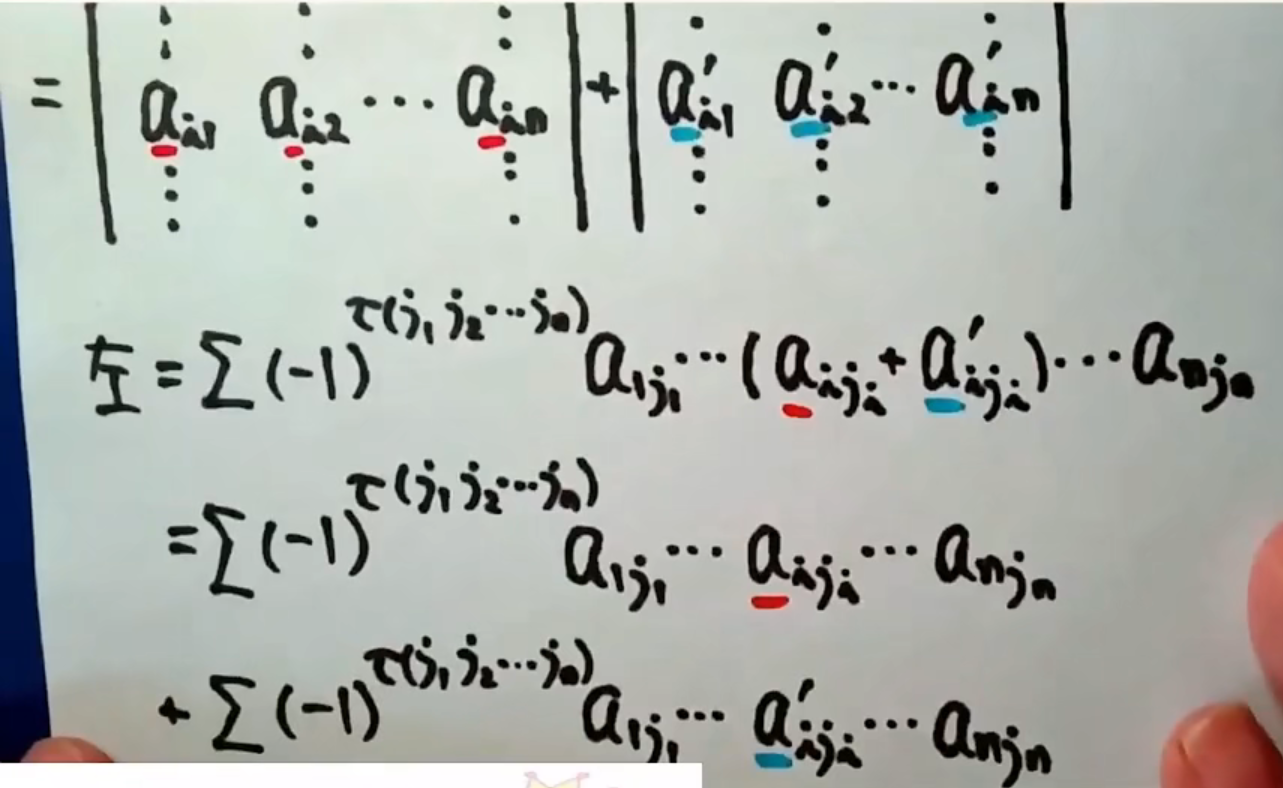 ⋮ ⋮ ⋮ ⋮ ⋮ ⋮
= | a_{i1} a_{i2} ⋯ a_{in} | + | a'_{i1} a'_{i2} ⋯ a'_{in} |
⋮ ⋮ ⋮ ⋮ ⋮ ⋮
左 = ∑ (-1)^{τ(j_1 j_2 ⋯ j_n)} a_{1j_1} ⋯ (a_{ij_i} + a'_{ij_i}) ⋯ a_{nj_n}
= ∑ (-1)^{τ(j_1 j_2 ⋯ j_n)} a_{1j_1} ⋯ a_{ij_i} ⋯ a_{nj_n}
+ ∑ (-1)^{τ(j_1 j_2 ⋯ j_n)} a_{1j_1} ⋯ a'_{ij_i} ⋯ a_{nj_n}